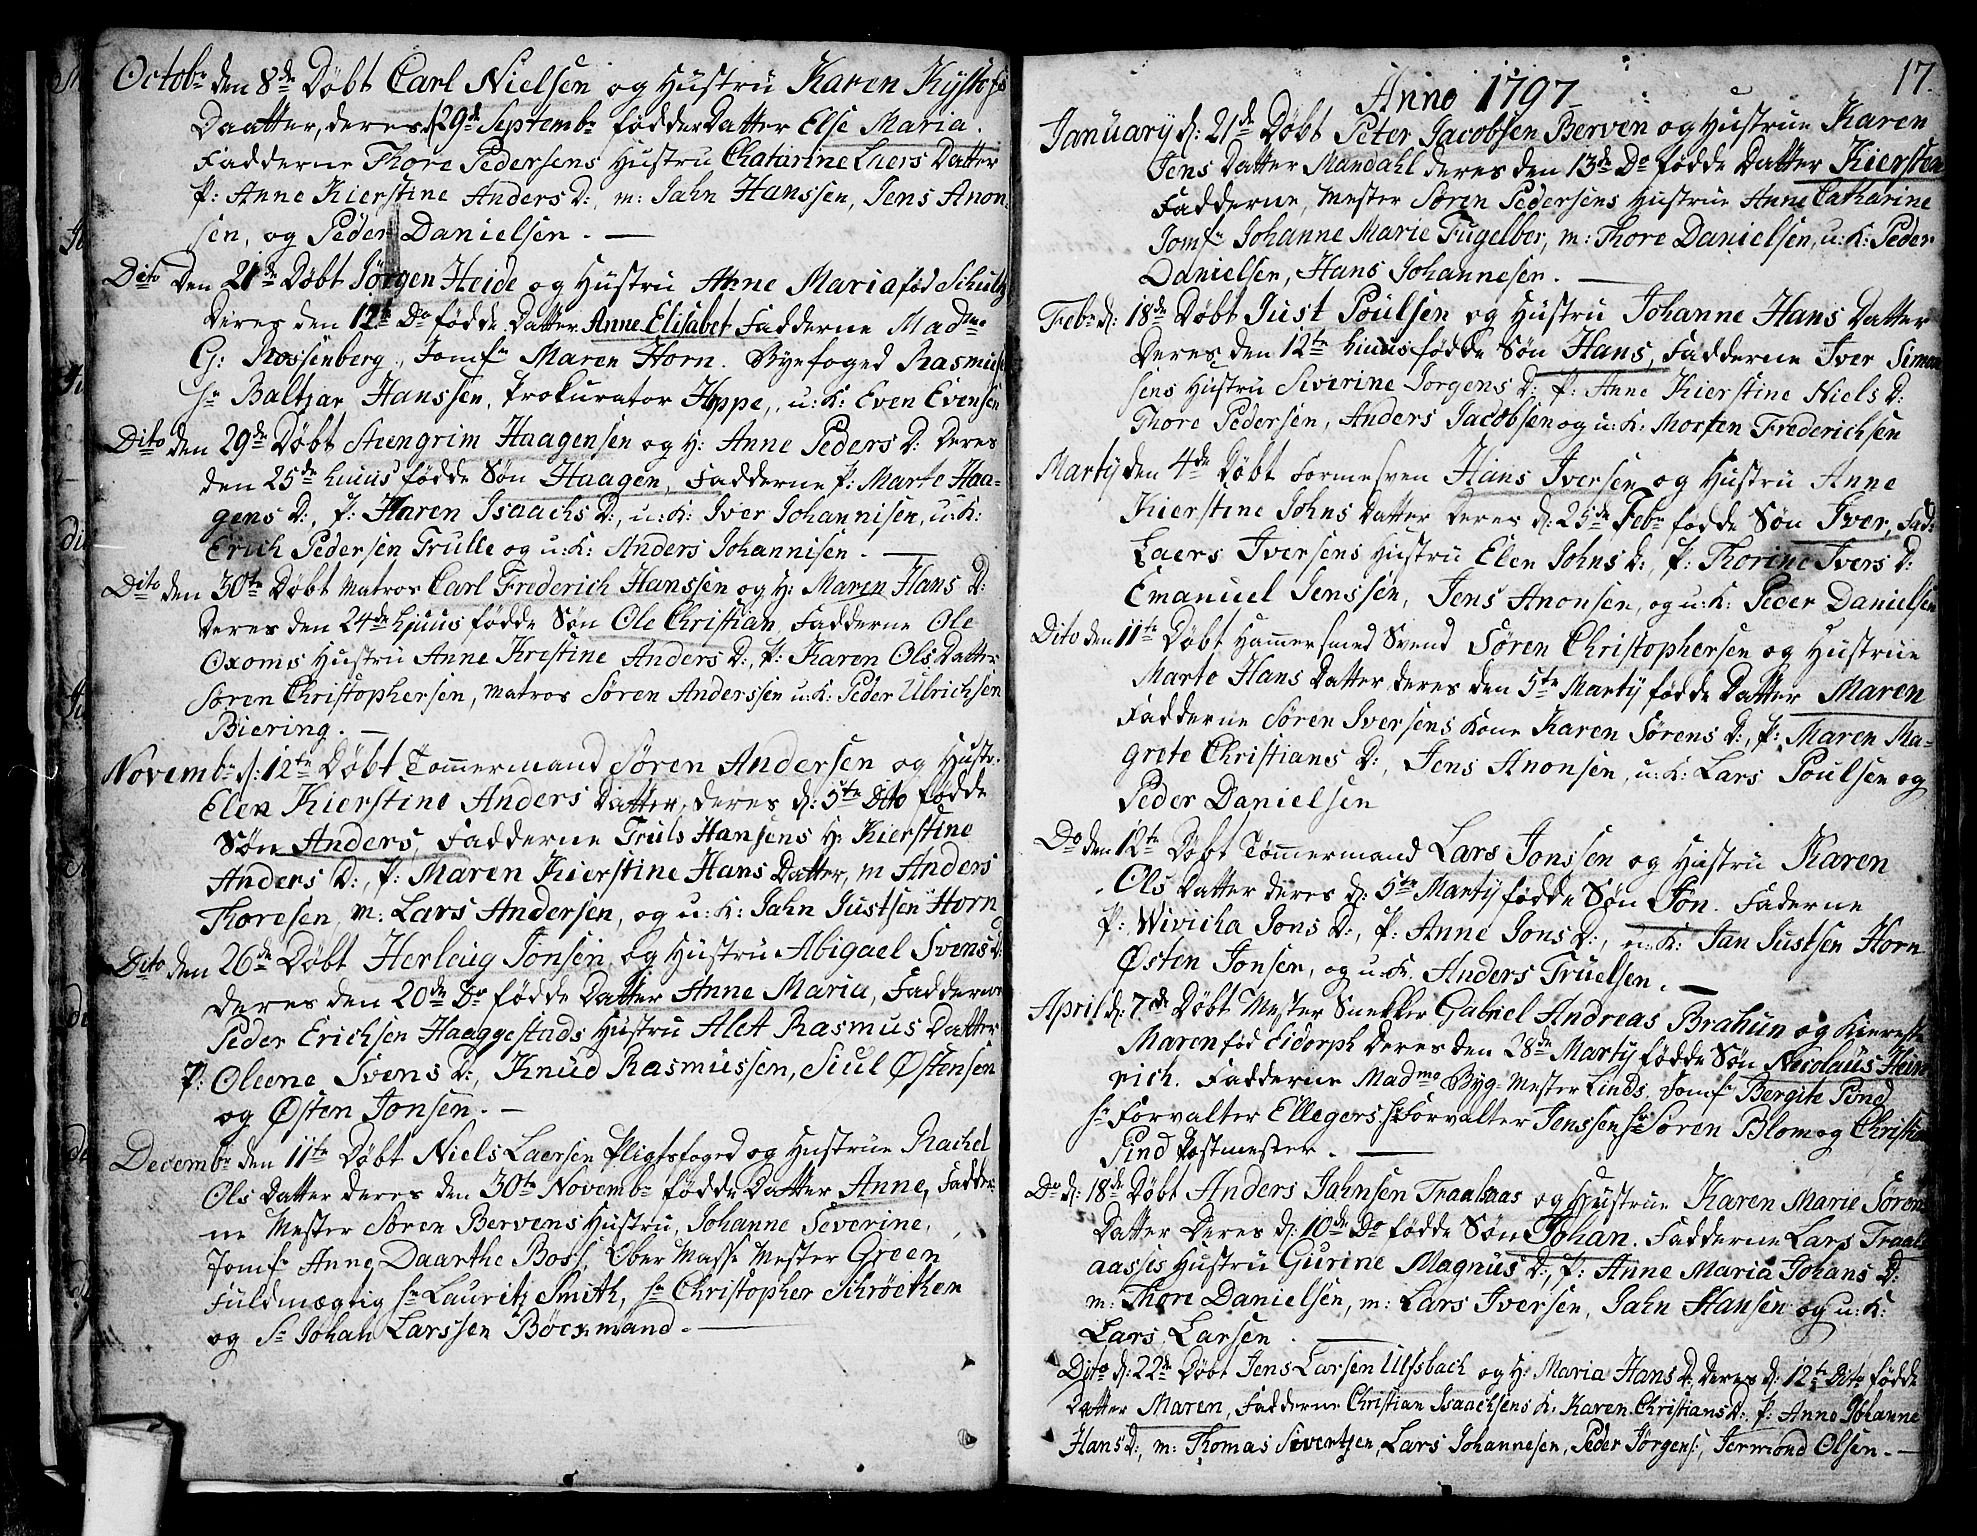 Octobr den 8de Døbt Carl Nielsen og Hustru Karen Kystofs
Daatter, deres d 29de Septembr fødde Datter Else Maria.
Fadderne Thore Pedersens Hustru Chatarine Laers Datter
P: Anne Kierstine Anders D:, m: Jahn Hanssen, Jens Anon
sen, og Peder Danielsen. —
Dito den 21de Døbt Jørgen Heide og Hustru Anne Maria fød Schultz
deres den 12te Do fødde Datter Anne Elisabet Fadderne Madme
G: Rossenberg, Jomfr Maren Horn. Byefoged Rasmusen
Sr Baltzar Hanssen, Prokurator Hoppe, u: K: Even Evensen
Dito den 29de Døbt Steengrim Haagensen og H: Anne Peders D: deres
den 25de huius fødde Søn Haagen, Fadderne P: Marte Haa-
gens D:, P: Karen Isaachs D:, u: K: Iver Johannisen, u: K:
Erich Pedersen Trulle og u: K: Anders Johannisen. —
Dito den 30te Døbt Matros Carl Frederich Hanssen og H: Maren Hans D:
deres den 24de hjuus fødde Søn Ole Christian Fadderne Ole
Oxoms Hustru Anne Kristine Anders D:, P: Karen Ols Datter
Søren Christophersen, Matros Søren Anderssen u: K: Peder Ulrichsen
Biering. —
Novembr d: 12te Døbt Tømmermand Søren Andersen og Hustr.
Elen Kierstine Anders Datter, deres d: 5te Dito fødde
Søn Anders, Fadderne Truls Hansens H: Kierstine
Anders D:, P: Maren Kierstine Hans Datter, m Anders
Thoresen, m: Lars Andersen, og u: K: Jahn Justsen Horn
Dito den 26de Døbt Herlaug Jonsen og Hustru Abigael Svens D:
deres den 20de Do fødde Datter Anne Maria, Fadderne
Peder Erichsen Haaggestads Hustru Alet Rasmus Datter
P: Oleene Svens D:, Knud Rasmussen, Siul Østensen
og Østen Jonsen. —
Decembr den 11te Døbt Niels Laersen Pligtsfoged og Hustrue Rachel
Ols Datter deres den 30te Novembr fødde Datter Anne, Fadder-
ne Mester Søren Bervens Hustru, Johanne Severine,
Jomfr Anne Daarthe Boss, Ober Mass Mester Green
Fuldmægtig Sr Lauritz Smith, Sr Christopher Schrøetken
og Sr Johan Larssen Bøckmand. —
17.
Anno 1797
January d: 21de Døbt Peter Jacobsen Berven og Hustrue Karen
Jens Datter Mandahl deres den 13de Do fødde Datter Kiersten
Fadderne, Mester Søren Pedersens Hustrue Anne Catharine
Jomfr Johanne Marie Fugelber, m: Thore Danielsen, u: K: Peder
Danielsen, Hans Johannesen. —
Febr d: 18de Døbt Just Poulsen og Hustru Johanne Hans Datter
deres den 12te huius fødde Søn Hans, Fadderne Iver Simon
sens Hustru Severine Jørgens D: P: Anne Kierstine Niels D:
Thore Pedersen, Anders Jacobsen og u: K: Morten Frederichsen
Martÿ den 4de Døbt Formesven Hans Iversen og Hustru Anne
Kierstine Johns Datter deres d: 25de Febr fødde Søn Iver, Fad:
Laers Iversens Hustru Elen Johns D:, P: Thorine Ivers D:
Emanuel Jenssen, Jens Anonsen, og u: K: Peder Danielsen
Dito den 11te Døbt Hammersmed Svend Søren Christophersen og Hustrue
Marte Hans Datter deres den 5te Martÿ fødde Datter Maren
Fadderne Søren Iversens Kone Karen Sørens D:, P: Maren Ma-
grete Christians D:, Jens Anonsen, u: K: Lars Poulsen og
Peder Danielsen
Do den 12te Døbt Tømmermand Lars Jonssen og Hustru Karen
Ols Datter deres d: 5te Martÿ fødde Søn Jon. Faderne
P: Wivicha Jons D:, P: Anne Jons D:, u: K: Jan Justsen Horn
Østen Jonsen, og u: K. Anders Truelsen. —
April d: 7de Døbt Mester Snekker Gabriel Andreas Brahun og Kiereste
Maren fød Eidorph deres den 28de Martÿ fødde Søn Nicolaus Hein
rich. Fadderne Madme Byg-Mester Linds, Jomfr Bergite Pind
Sr Forvalter Ellegers Sr Forvalter Jenssen Sr Søren Blom og Christian
Pind Postmester. —
Do d: 18de Døbt Anders Jahnsen Traalsaas og Hustrue Karen Marie Sørens
Datter deres d: 10de Do fødde Søn Johan. Fadderne Lars Traal-
aasses Hustru Gurine Magnus D:, P: Anne Maria Johans D:
m: Thore Danielsen, m: Lars Iversen, Jahn Hansen og u: K:
Lars Larsen. —
Dito d: 22de Døbt Jens Larsen Ulfsbach og H: Maria Hans D: deres d: 12te Dito fødde
Datter Maren, Fadderne Christian Isaachsens K: Karen Christians D:, P: Anne Johanne
Hans D:, m: Thomas Sivertsen, Lars Johannesen, Peder Jørgens:, Jermond Olsen. —